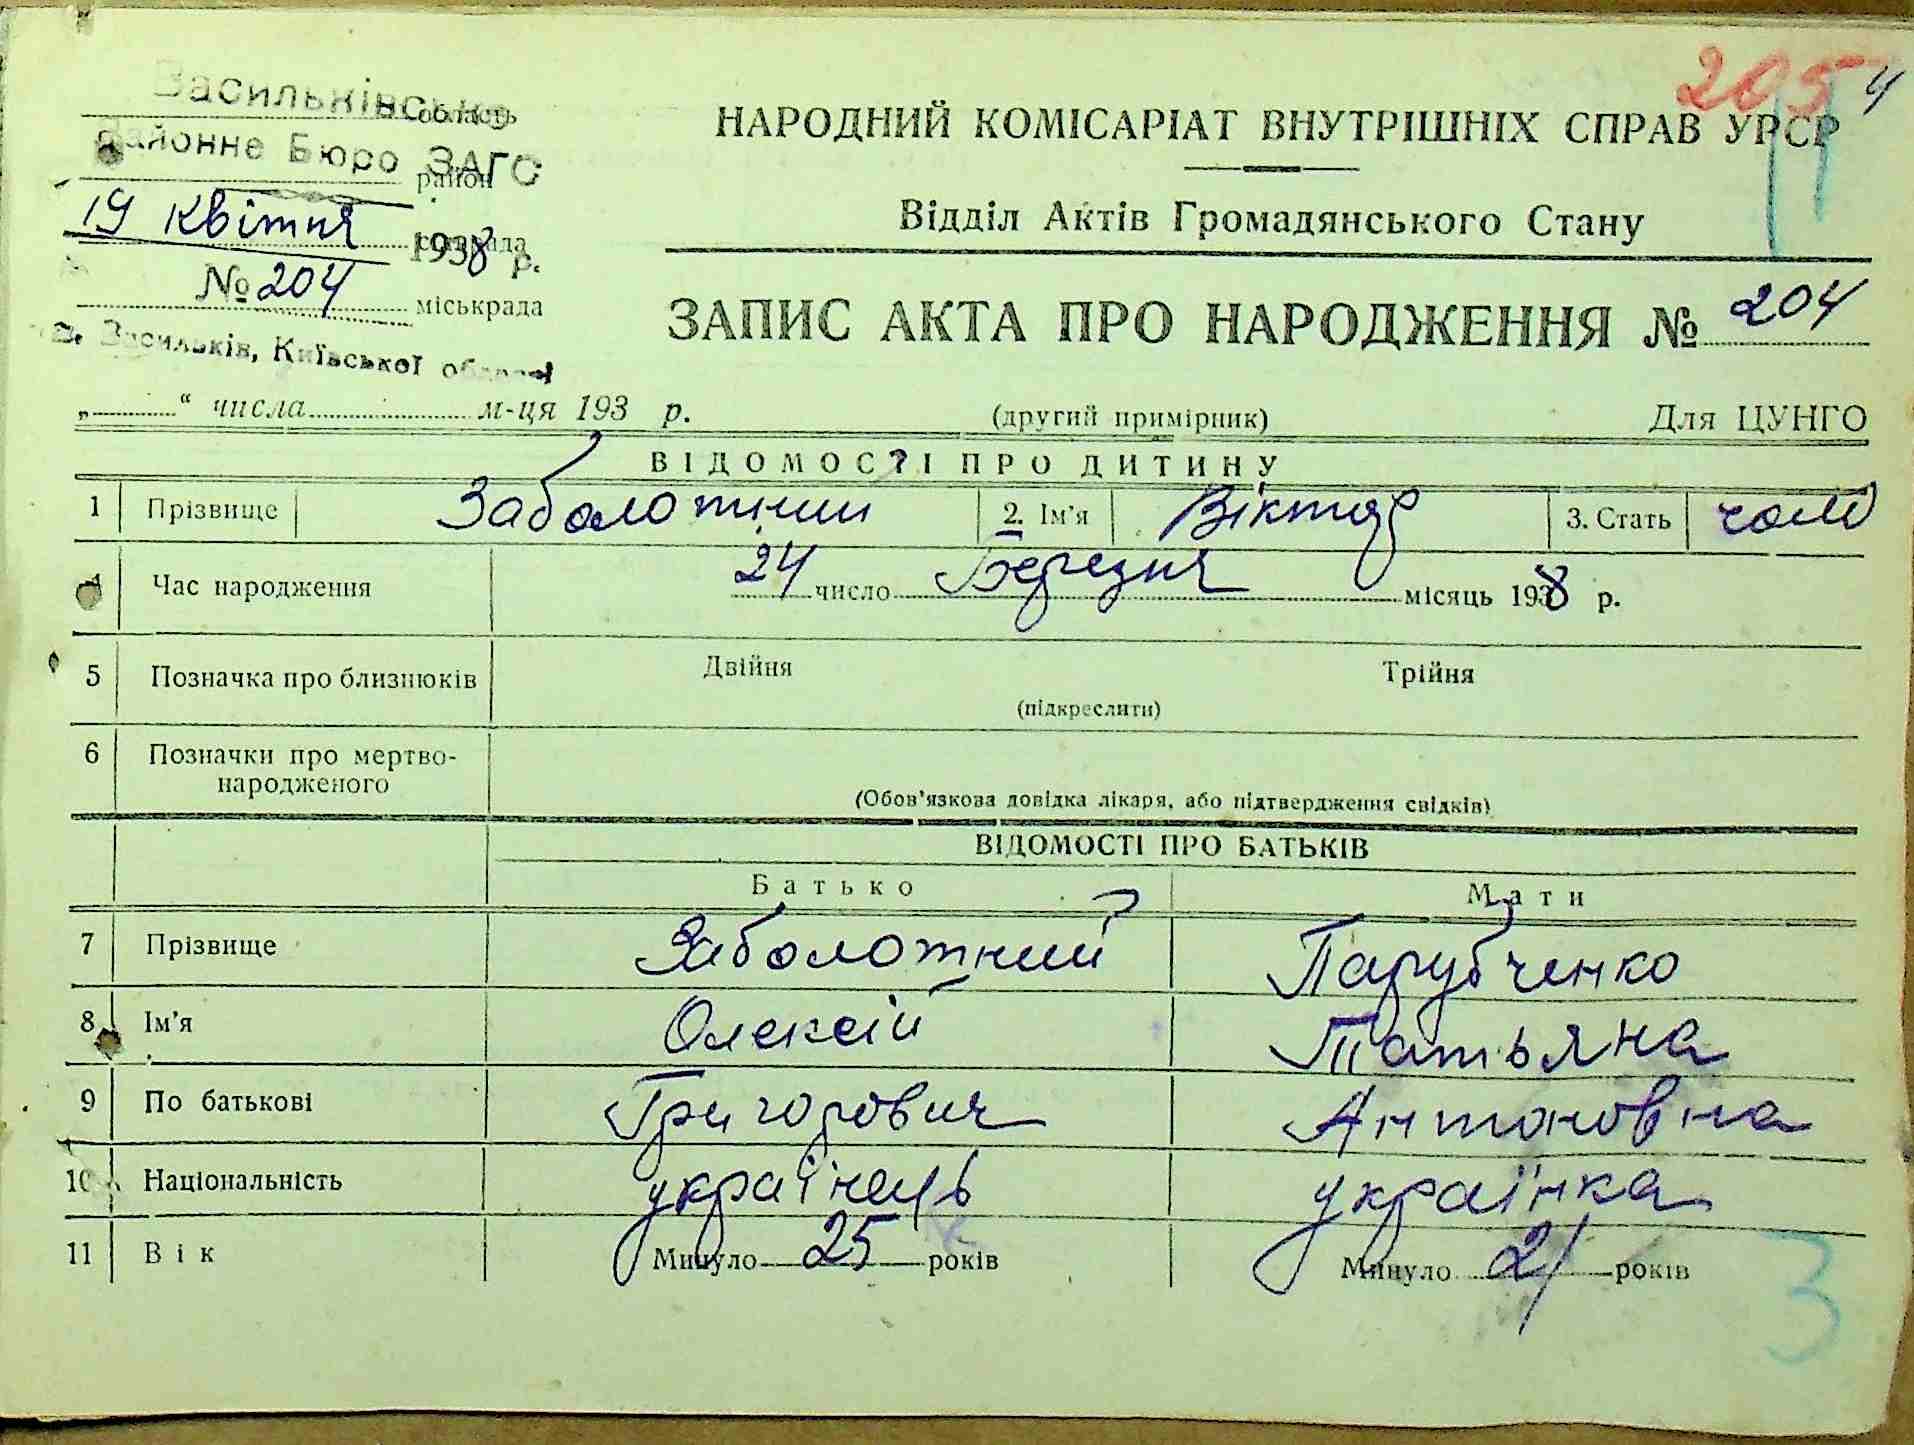 205 4
Васильківське
область
районне Бюро ЗАГС
район
19 квітня 1938 р.
№ 204
міськрада
м. Васильків, Київської області
„ “ числа м-ця 193 р.
НАРОДНИЙ КОМІСАРІАТ ВНУТРІШНІХ СПРАВ УРСР
Відділ Актів Громадянського Стану
ЗАПИС АКТА ПРО НАРОДЖЕННЯ № 204
(другий примірник) Для ЦУНГО
ВІДОМОСТІ ПРО ДИТИНУ
1 Прізвище Заболотний 2. Ім'я Віктор 3. Стать чолов
4 Час народження 24 число Березня місяць 1938 р.
5 Позначка про близнюків Двійня Трійня
(підкреслити)
6 Позначки про мертво-
народженого
(Обов'язкова довідка лікаря, або підтвердження свідків)
ВІДОМОСТІ ПРО БАТЬКІВ
Батько Мати
7 Прізвище Заболотний Парубченко
8 Ім'я Олексій Татьяна
9 По батькові Григорович Антоновна
10 Національність українець українка
11 Вік Минуло 25 років Минуло 21 років
3